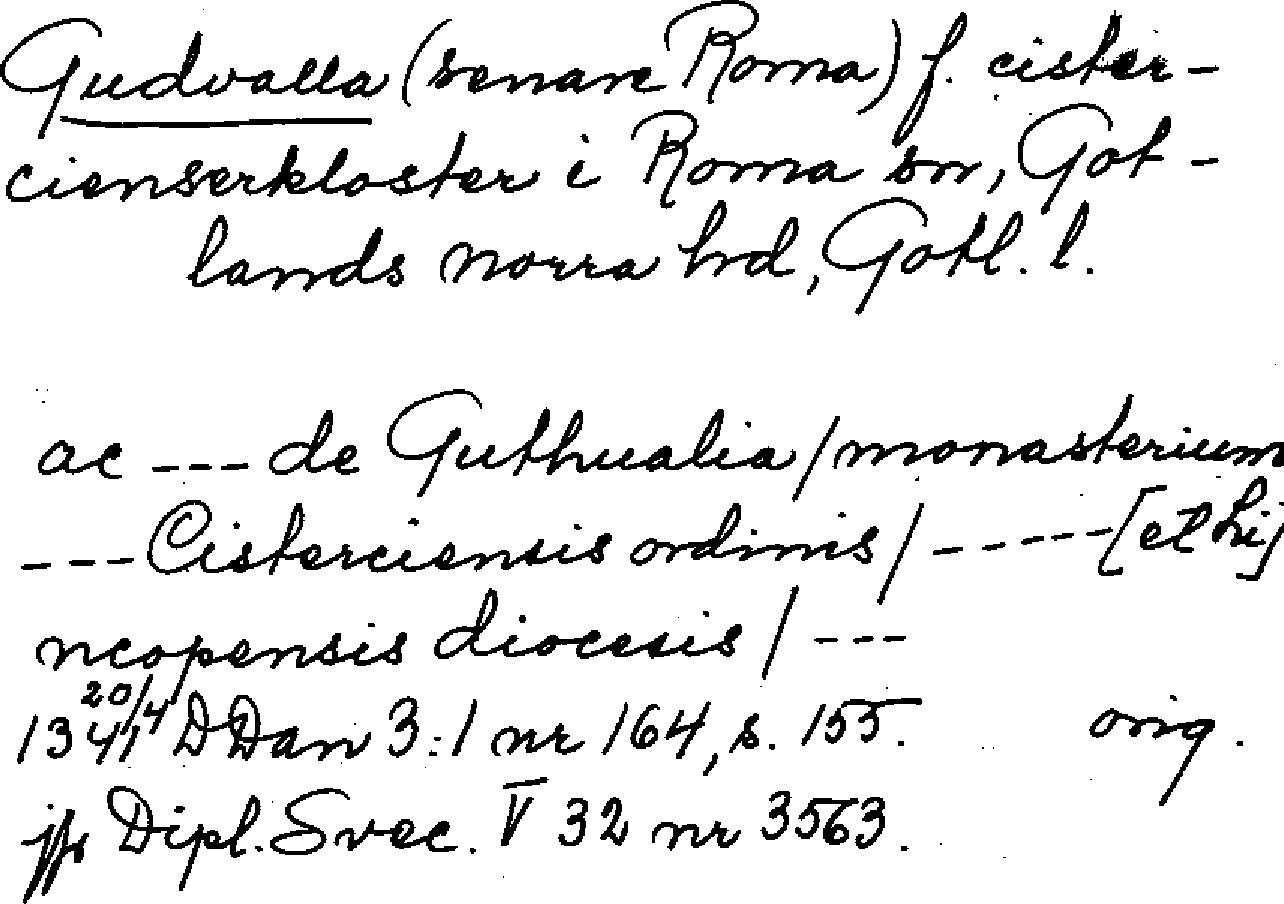 Gudvalla (senare Roma) f. cister-
cienserkloster i Roma sn, Got-
lands norra hd, Gotl. l.
ac --- de Guthualia / monasterium
--- Cisterciensis ordinis / ----- [et Li]
ncopensis diocesis / ---
1341 20/4 DDan 3:1 nr 164, s. 155. orig.
jfr Dipl. Svec. V 32 nr 3563.